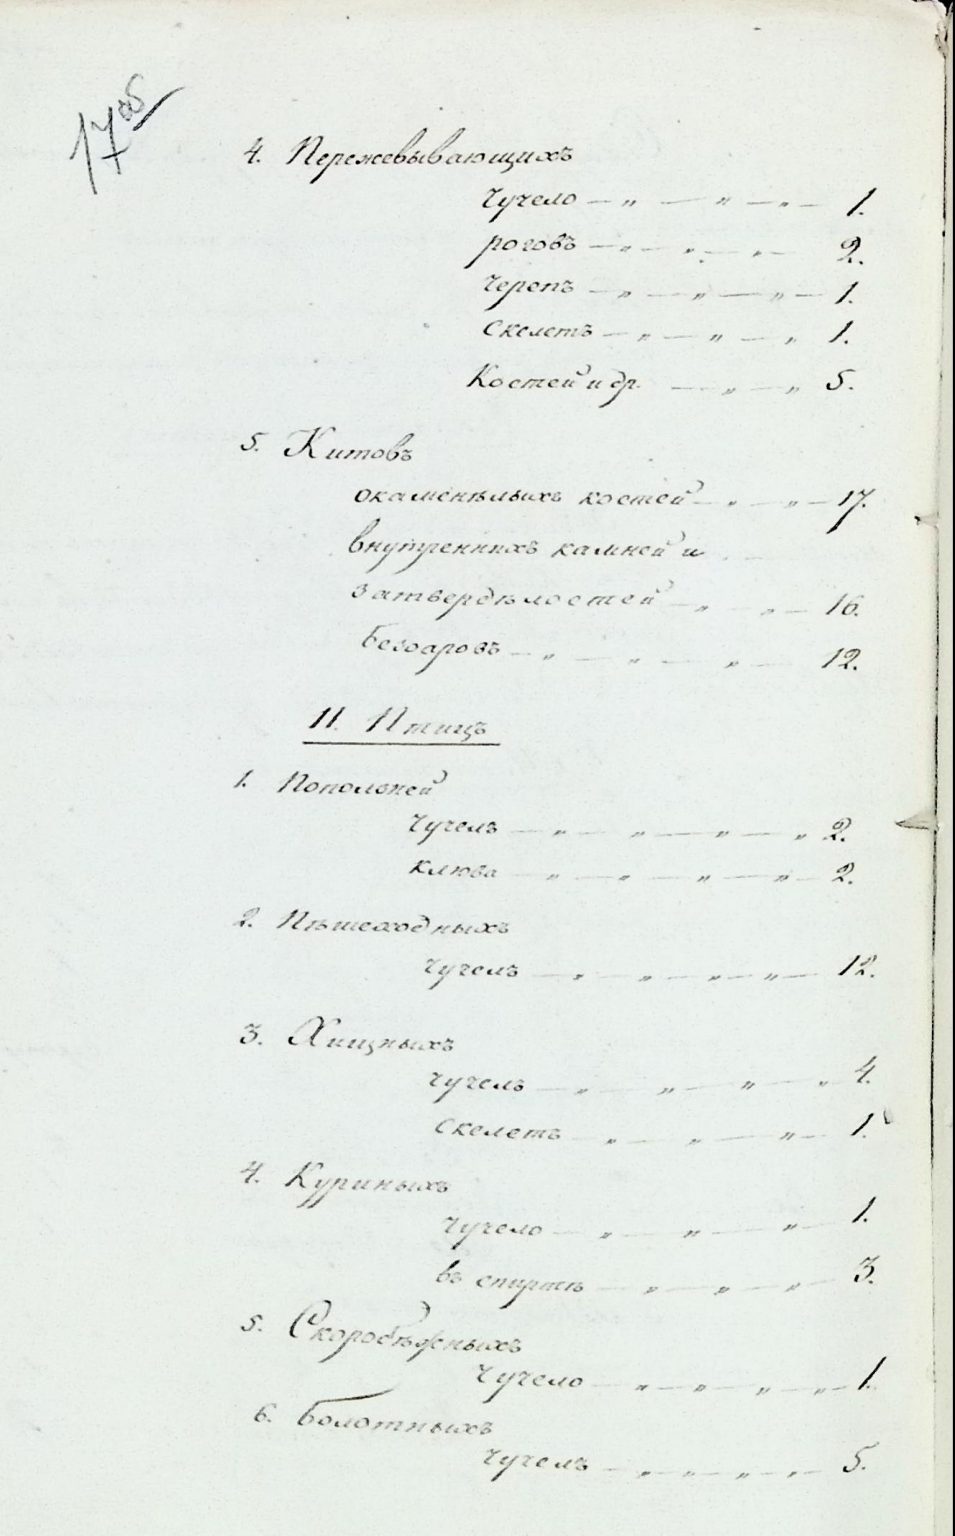 17 об
4. Пережевывающихъ
Чучело — „ — „ — „ — 1.
роговъ — „ — „ — „ — 2.
Черепъ — „ — „ — „ — 1.
Скелетъ — „ — „ — „ 1.
Костей и др. — „ — „ 5.
5. Китовъ
окаменѣлыхъ костей — „ — „ — 17.
внутреннихъ камней и
затвердѣлостей — „ — „ — 16.
Безоаровъ — „ — „ — „ — 12.
II. Птицъ
1. Попользней
Чучелъ — „ — „ — „ — „ 2.
клюва — „ — „ — „ — „ — 2.
2. Пѣшеходныхъ
Чучелъ — „ — „ — „ — „ — 12.
3. Хищныхъ
чучелъ — „ — „ — „ — „ 4.
Скелетъ — „ — „ — „ — 1.
4. Куриныхъ
Чучело — „ — „ — „ — 1.
въ спиртѣ — „ — „ — „ — 3.
5. Скоробѣжныхъ
Чучело — „ — „ — „ — „ — 1.
6. Болотныхъ
Чучелъ — „ — „ — „ — „ — 5.